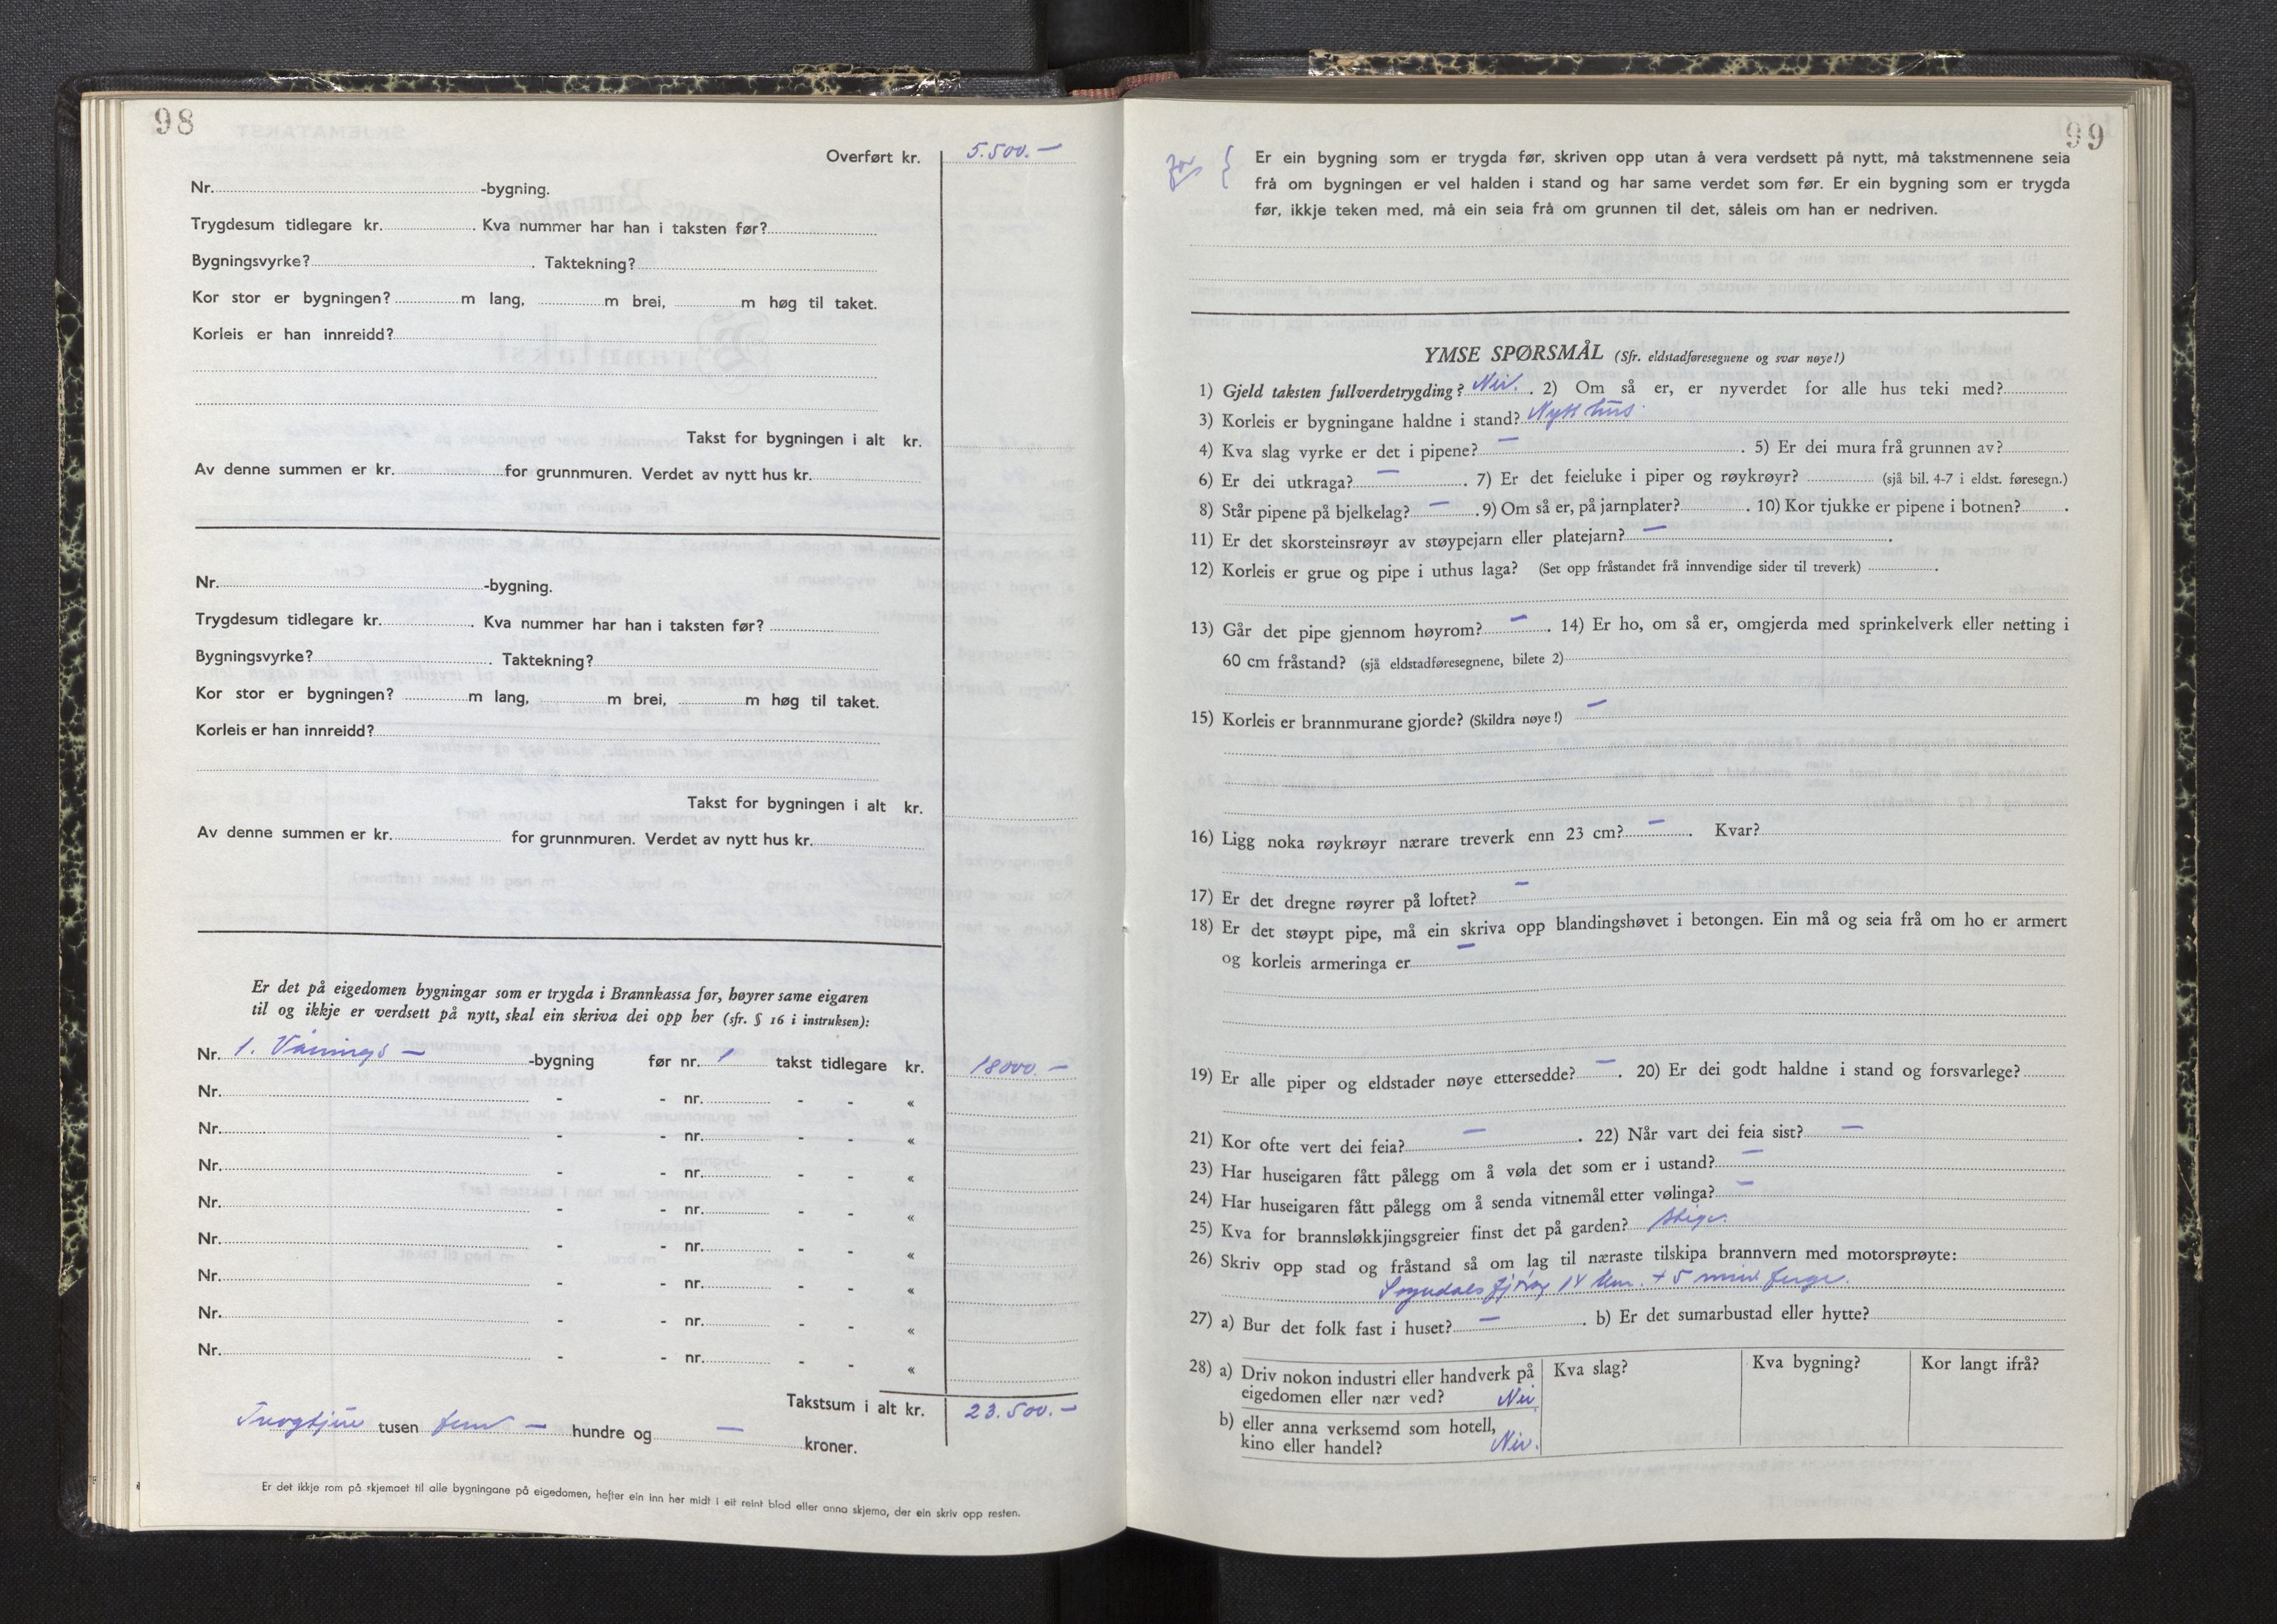 98
Overført kr. 5.500.—
Nr. -bygning.
Trygdesum tidlegare kr. . Kva nummer har han i taksten før?
Bygningsvyrke? . Taktekning?
Kor stor er bygningen? m lang, m brei, m høg til taket.
Korleis er han innreidd?
Takst for bygningen i alt kr.
Av denne summen er kr. for grunnmuren. Verdet av nytt hus kr.
Nr. -bygning.
Trygdesum tidlegare kr. . Kva nummer har han i taksten før?
Bygningsvyrke? . Taktekning?
Kor stor er bygningen? m lang, m brei, m høg til taket.
Korleis er han innreidd?
Takst for bygningen i alt kr.
Av denne summen er kr. for grunnmuren. Verdet av nytt hus kr.
Er det på eigedomen bygningar som er trygda i Brannkassa før, høyrer same eigaren
til og ikkje er verdsett på nytt, skal ein skriva dei opp her (sfr. § 16 i instruksen):
Nr. 1. Vånings — -bygning før nr. 1 takst tidlegare kr. 18000.—
Nr. - - nr. - - «
Nr. - - nr. - - «
Nr. - - nr. - - «
Nr. - - nr. - - «
Nr. - - nr. - - «
Nr. - - nr. - - «
Nr. - - nr. - - «
Nr. - - nr. - - «
Takstsum i alt kr. 23.500.—
tusen fem — hundre og — kroner.
Er det ikkje rom på skjemaet til alle bygningane på eigedomen, hefter ein inn her midt i eit reint blad eller anna skjema, der ein skriv opp resten.
99
Ja { Er ein bygning som er trygda før, skriven opp utan å vera verdsett på nytt, må takstmennene seia
frå om bygningen er vel halden i stand og har same verdet som før. Er ein bygning som er trygda
før, ikkje teken med, må ein seia frå om grunnen til det, såleis om han er nedriven.
YMSE SPØRSMÅL (Sfr. eldstadføresegnene og svar nøye!)
1) Gjeld taksten fullverdetrygding? Nei. . 2) Om så er, er nyverdet for alle hus teki med?
3) Korleis er bygningane haldne i stand? Nytt hus.
4) Kva slag vyrke er det i pipene? — . 5) Er dei mura frå grunnen av?
6) Er dei utkraga? — . 7) Er det feieluke i piper og røykrøyr? (sjå bil. 4-7 i eldst. føresegn.)
8) Står pipene på bjelkelag? — . 9) Om så er, på jarnplater? . 10) Kor tjukke er pipene i botnen? .
11) Er det skorsteinsrøyr av støypejarn eller platejarn? — .
12) Korleis er grue og pipe i uthus laga? (Set opp fråstandet frå innvendige sider til treverk) .
13) Går det pipe gjennom høyrom? — . 14) Er ho, om så er, omgjerda med sprinkelverk eller netting i
60 cm fråstand? (sjå eldstadføresegnene, bilete 2)
15) Korleis er brannmurane gjorde? (Skildra nøye!) —
16) Ligg noka røykrøyr nærare treverk enn 23 cm? — . Kvar?
17) Er det dregne røyrer på loftet? —
18) Er det støypt pipe, må ein skriva opp blandingshøvet i betongen. Ein må og seia frå om ho er armert
og korleis armeringa er —
19) Er alle piper og eldstader nøye ettersedde? — . 20) Er dei godt haldne i stand og forsvarlege?
21) Kor ofte vert dei feia? — . 22) Når vart dei feia sist? —
23) Har huseigaren fått pålegg om å vøla det som er i ustand? —
24) Har huseigaren fått pålegg om å senda vitnemål etter vølinga? —
25) Kva for brannsløkkjingsgreier finst det på garden? Stige.
26) Skriv opp stad og fråstand så om lag til næraste tilskipa brannvern med motorsprøyte:
Sogndalsfjöra 14 km. + 5 min ferge.
27) a) Bur det folk fast i huset? — . b) Er det sumarbustad eller hytte?
28) a) Driv nokon industri eller handverk på
eigedomen eller nær ved? Nei
b) eller anna verksemd som hotell,
kino eller handel? Nei.
Kva slag?
Kva bygning?
Kor langt ifrå?